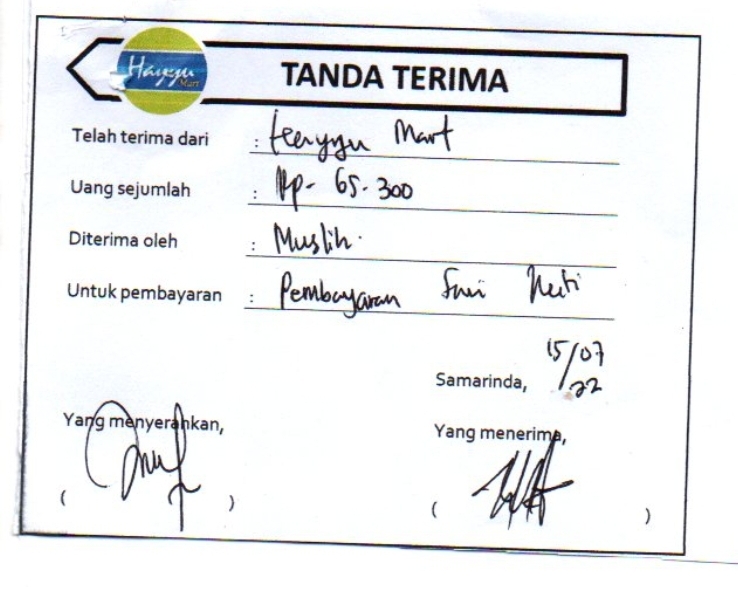 Hayyu Mart
TANDA TERIMA
Telah terima dari : Hayyu Mart
Uang sejumlah : Rp. 65.300
Diterima oleh : Muslih.
Untuk pembayaran : Pembayaran Sari
Samarinda, 15/07/22
Yang menyerahkan, Yang menerima,
( ) ( )